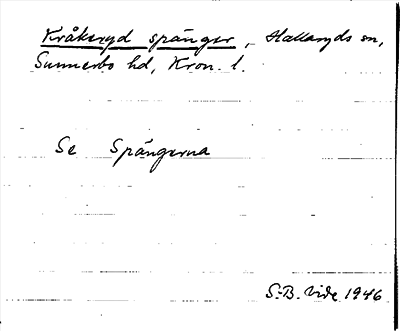 Kråkeryd spänger, Hallaryds sn,
Sunnerbo hd, Kron. l.
Se Spängerna
S.-B. Vide 1946